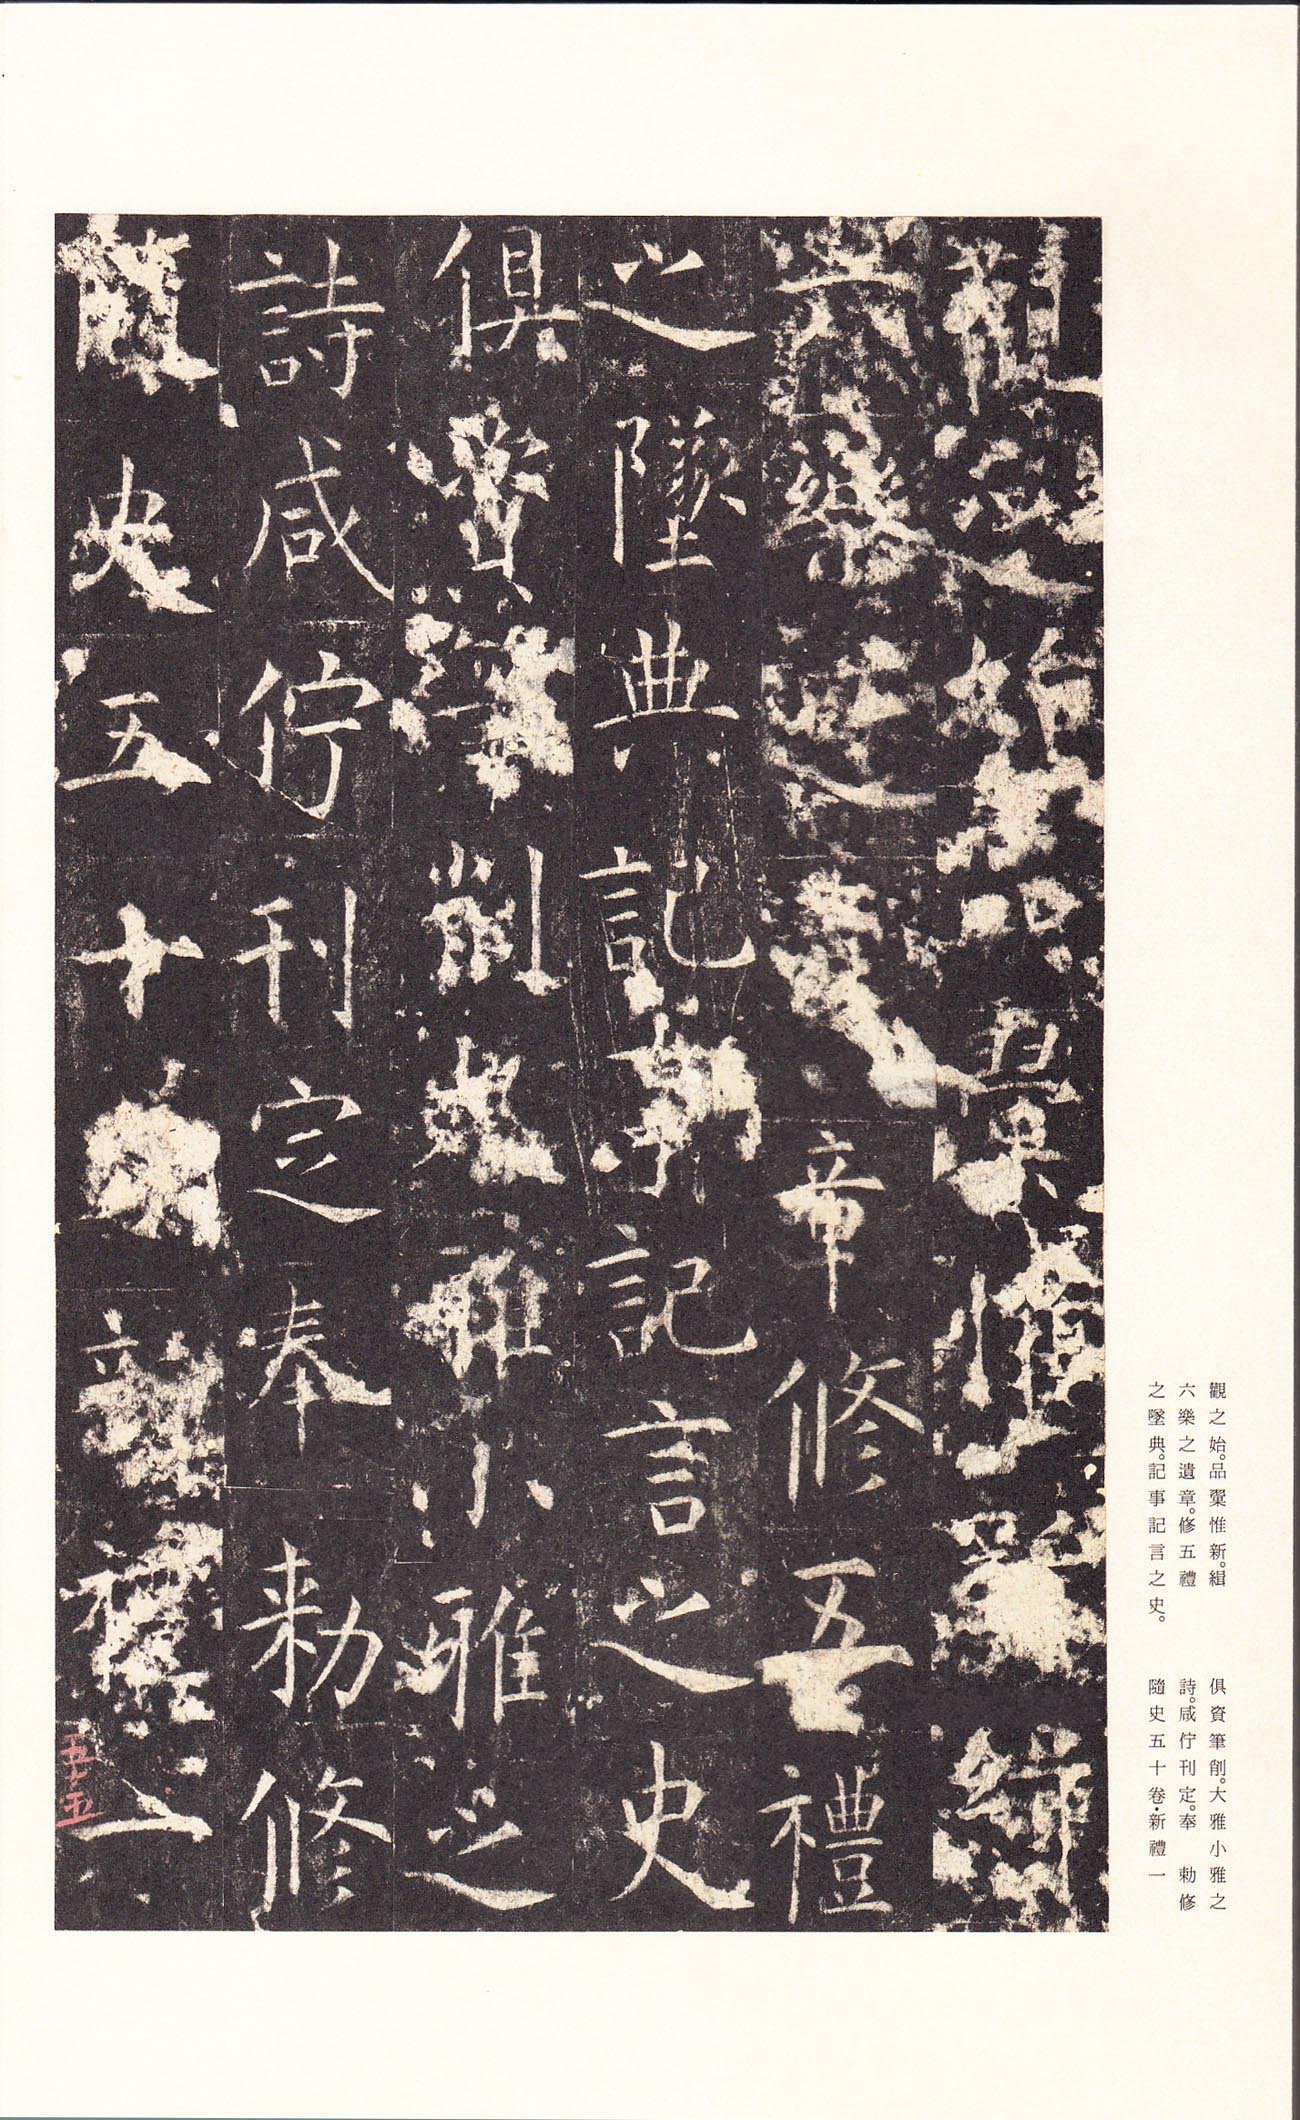 觀之始品彙惟新緝
六樂之遺章修五禮
之墜典記事記言之史
俱資筆削大雅小雅之
詩咸佇刊定奉勅修
隨史五十卷新禮一
觀之始。品彙惟新。緝
六樂之遺章。修五禮
之墜典。記事記言之史。
俱資筆削。大雅小雅之
詩。咸佇刊定。奉 勅修
隨史五十卷・新禮一